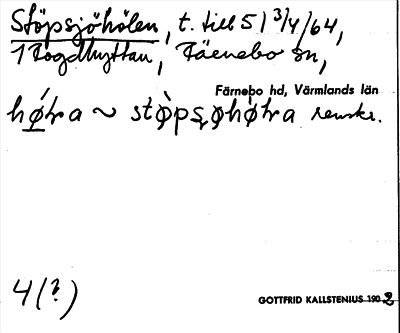 Stöpsjöhölen, t. till 5 1 3/4 /64,
1 Fogdhyttan, Färnebo sn,
Färnebo hd, Värmlands län
hø̀lra ~ støpsøhø̀lra
4 (?)
GOTTFRID KALLSTENIUS 1902